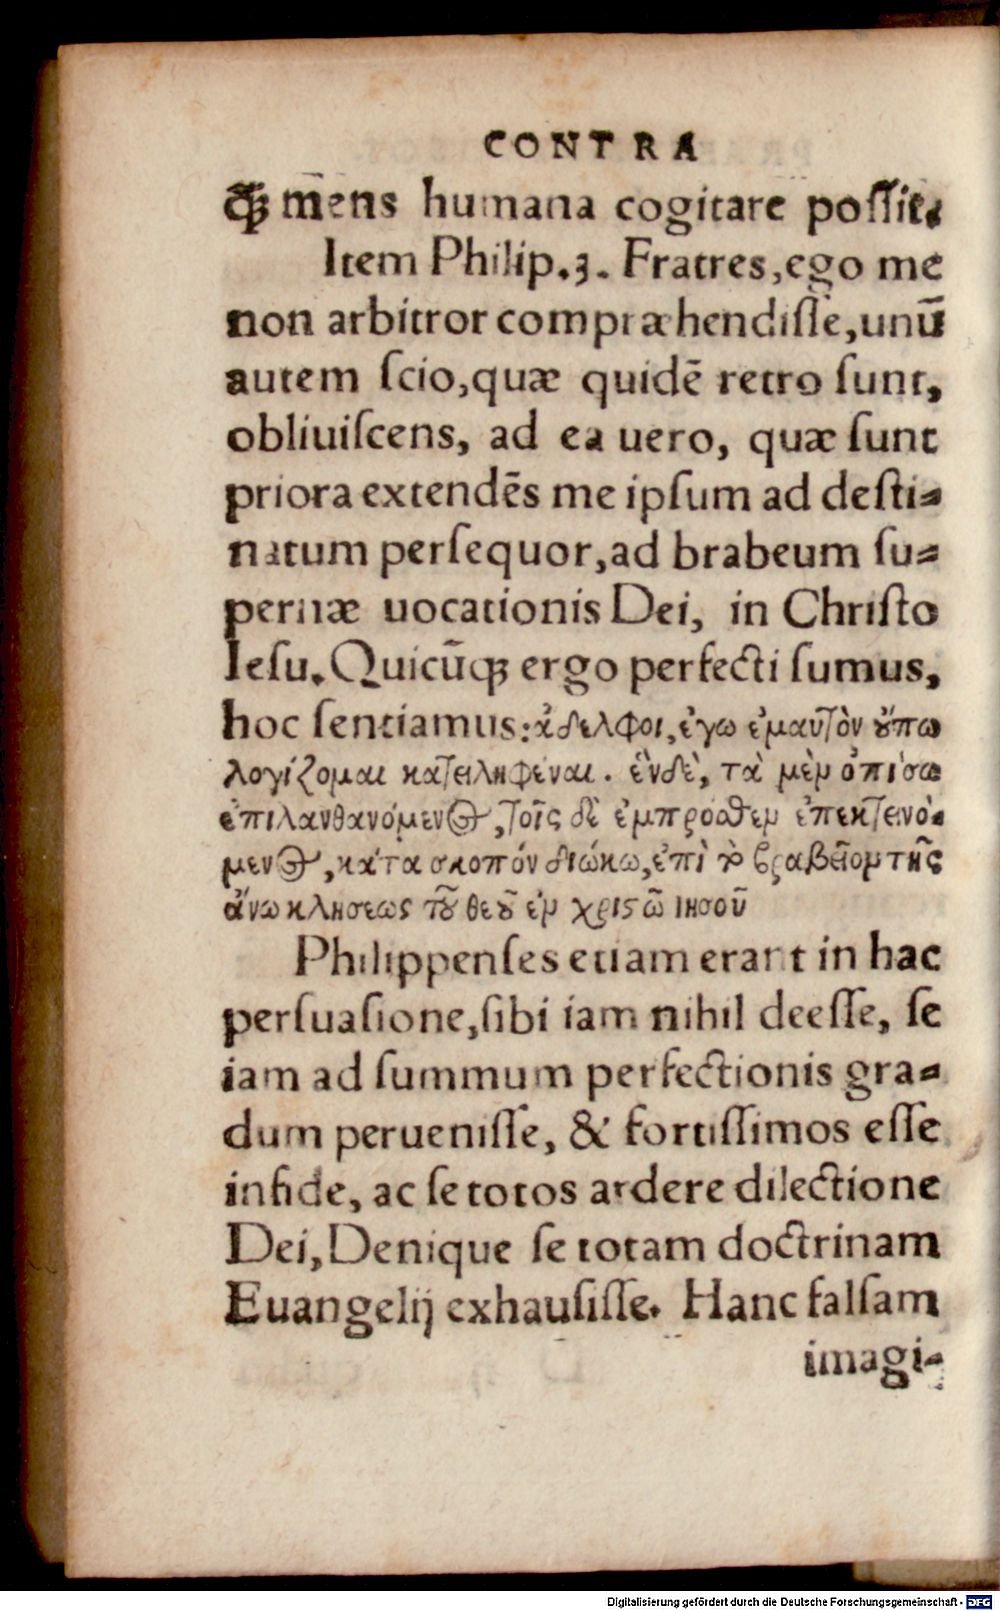 CONTRA
q̃ꝫ mens humana cogitare poſſit.
Item Philip.3. Fratres,ego me
non arbitror compræhendiſſe,unũ
autem ſcio,quæ quidẽ retro ſunt,
obliuiſcens, ad ea uero, quæ ſunt
priora extendẽs me ipſum ad deſti⸗
natum perſequor,ad brabeum ſu⸗
pernæ uocationis Dei, in Chriſto
Ieſu. Quicũqꝫ ergo perfecti ſumus,
hoc ſentiamus: ἀδελφοι, ἐγω ἐμαυτὸν ȣ̓́πω
λογίζομαι κατειληφέναι. ἓνδὲ, τὰ μὲν ὀπίσω
ἐπιλανθανόμενος, τοῖς δὲ ἐμπροσθεν ἐπεκτεινό⸗
μενος, κάτα σκοπόν διώκω, ἐπὶ τὸ βραβεῖον τῆς
ἄνω κλησεως τȣ͂ θεȣ͂ ἐν χριϛῶ ιησοῦ
Philippenſes etiam erant in hac
perſuaſione,ſibi iam nihil deeſſe, ſe
iam ad ſummum perfectionis gra⸗
dum perueniſſe, & fortiſſimos eſſe
in fide, ac ſe totos ardere dilectione
Dei, Denique ſe totam doctrinam
Euangelij exhauſiſſe. Hanc falſam
imagi⸗
Digitalisierung gefördert durch die Deutsche Forschungsgemeinschaft - DFG